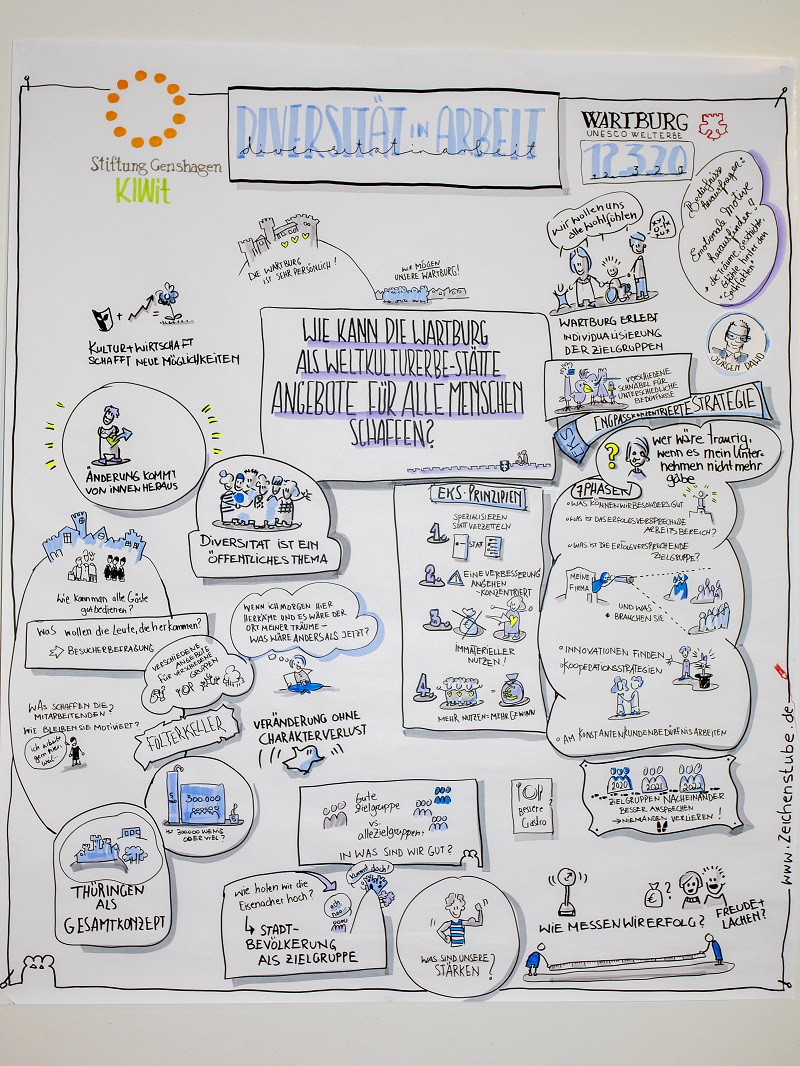 DIVERSITÄT IN ARBEIT
diversität in arbeit
Stiftung Genshagen
KIWit
WARTBURG
UNESCO WELTERBE
12.3.20
DIE WARTBURG
IST SEHR PERSÖNLICH!
WIR MÖGEN
UNSERE WARTBURG!
wir wollen uns
alle wohlfühlen
Bedürfnisse
herausfragen:
Emotionale Motive
herausfinden?
• die Träume, Geschichte,
hinter den
KULTUR + WIRTSCHAFT
SCHAFFT NEUE MÖGLICHKEITEN
WIE KANN DIE WARTBURG
ALS WELTKULTURERBE-STÄTTE
ANGEBOTE FÜR ALLE MENSCHEN
SCHAFFEN?
WARTBURG ERLEBT
INDIVIDUALISIERUNG
DER ZIELGRUPPEN
JÜRGEN DAWO
VERSCHIEDENE
SCHNÄBEL FÜR
UNTERSCHIEDLICHE
BEDÜRFNISSE
EKS
ENGPASSKONZENTRIERTE STRATEGIE
wer wäre traurig,
wenn es mein Unter-
nehmen nicht mehr
gäbe
ÄNDERUNG KOMMT
VON INNEN HERAUS
DIVERSITÄT IST EIN
ÖFFENTLICHES THEMA
EKS-PRINZIPIEN
1. SPEZIALISIEREN
STATT VERZETTELN
STATT
2. EINE VERBESSERUNG
ANGEHEN
KONZENTRIERT
3. IMMATERIELLER
NUTZEN!
4. MEHR NUTZEN = MEHR GEWINN
7 PHASEN
• WAS KÖNNEN WIR BESONDERS GUT
• WAS IST DAS ERFOLGSVERSPRECHENDE
ARBEITSBEREICH?
• WAS IST DIE ERFOLGVERSPRECHENDE
ZIELGRUPPE?
MEINE
FIRMA
UND WAS
• BRAUCHEN SIE
• INNOVATIONEN FINDEN
• KOOPERATIONSSTRATEGIEN
• AM KONSTANTEN KUNDENBEDÜRFNIS ARBEITEN
Wie kann man alle Gäste
gut bedienen?
Was wollen die Leute, die herkommen?
BESUCHERBEFRAGUNG
WENN ICH MORGEN HIER
HERKÄME UND ES WÄRE DER
ORT MEINER TRÄUME –
WAS WÄRE ANDERS ALS JETZT?
VERSCHIEDENE
ANGEBOTE
FÜR VERSCHIEDENE
GRUPPEN
WAS SCHAFFEN DIE
MITARBEITENDEN?
WIE BLEIBEN SIE MOTIVIERT?
ich arbeite
gern hier,
weil
FOLTERKELLER
VERÄNDERUNG OHNE
CHARAKTERVERLUST
300.000
IST 300000 WENIG
ODER VIEL?
THÜRINGEN
ALS
GESAMTKONZEPT
Gute
Zielgruppe
vs.
alle Zielgruppen!
IN WAS SIND WIR GUT?
Bessere
Gastro
2020
2021
2022
ZIELGRUPPEN NACHEINANDER
BESSER ANSPRECHEN
→ NIEMANDEN VERLIEREN!
www.Zeichenstube.de
Wie holen wir die
Eisenacher hoch?
ach
nöö...
kommt doch!
STADT-
BEVÖLKERUNG
ALS ZIELGRUPPE
WAS SIND UNSERE
STÄRKEN?
WIE MESSEN WIR ERFOLG?
FREUDE+
LACHEN?